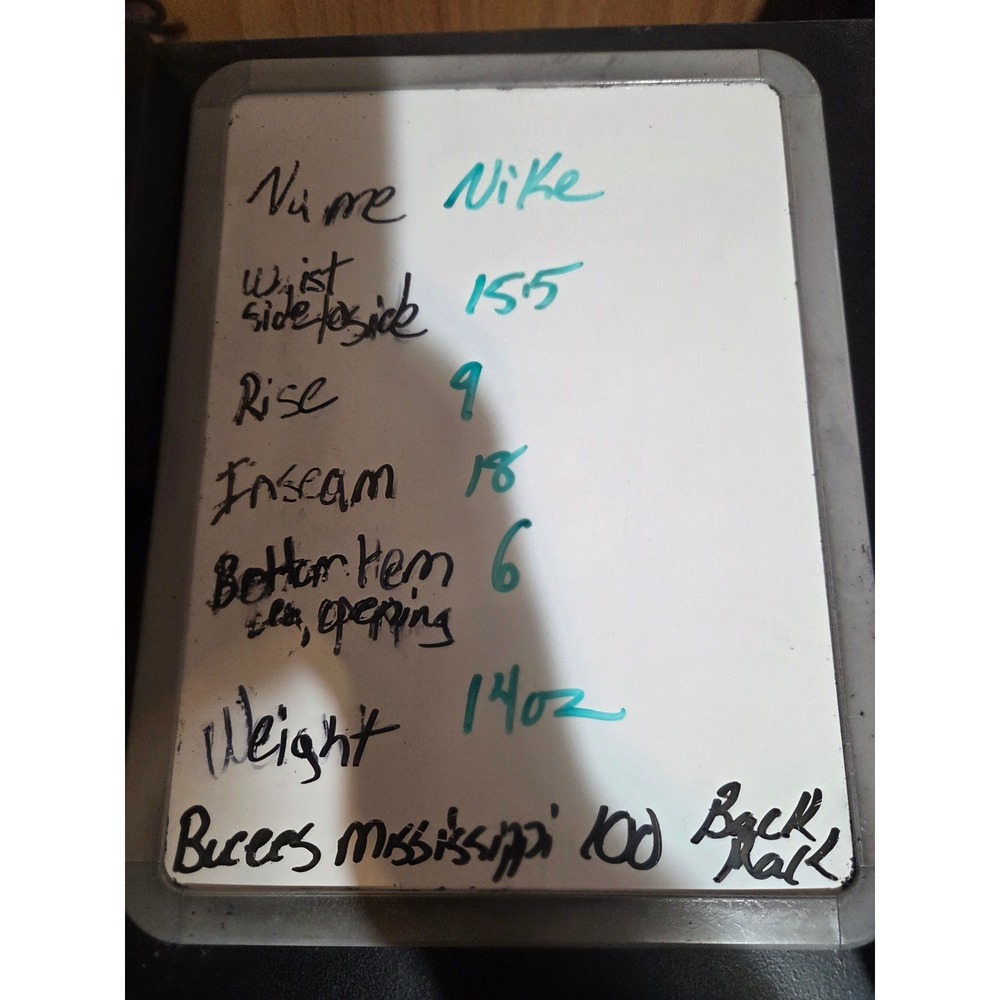 Name Nike
Waist 15.5
side to side
Rise 9
Inseam 18
Bottom Hem 6
opening
Weight 14oz
Mississippi 100 Back
Mark